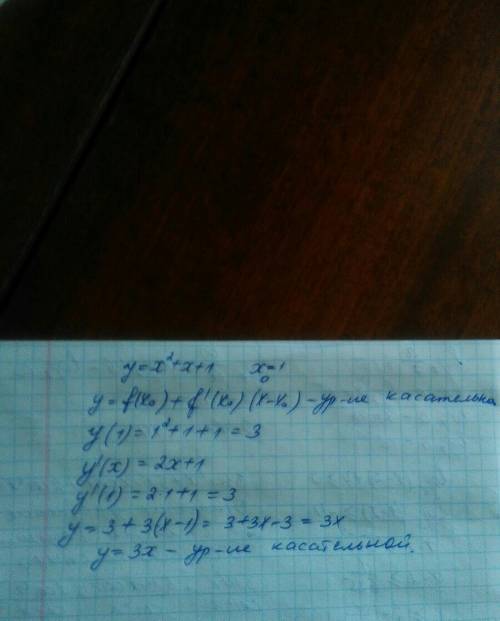 y=x²+x+1 x₀=1
y=f(x₀)+f'(x₀)(x-x₀) - ур-ие касательна
y(1)=1²+1+1=3
y'(x)=2x+1
y'(1)=2·1+1=3
y=3+3(x-1)=3+3x-3=3x
y=3x - ур-ие касательной.